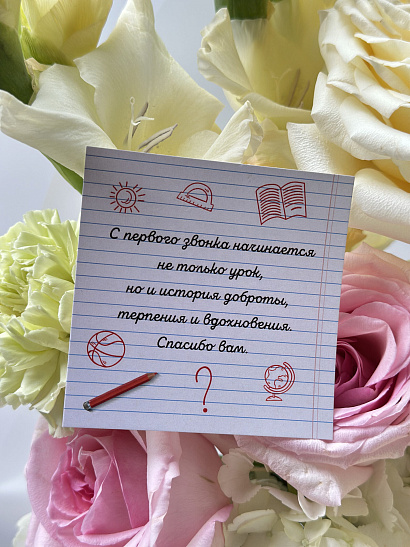 С первого звонка начинается
не только урок,
но и история доброты,
терпения и вдохновения.
Спасибо вам.
?